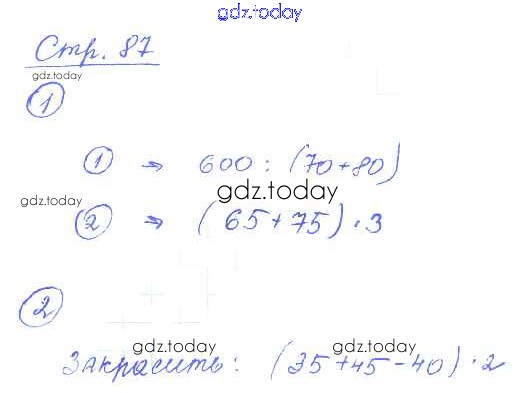 gdz.today
Стр. 87
gdz.today
1
1 → 600 : (70+80)
gdz.today
gdz.today
2 → (65+75) · 3
2
gdz.today
gdz.today
Закрасить: (35+45-40) · 2